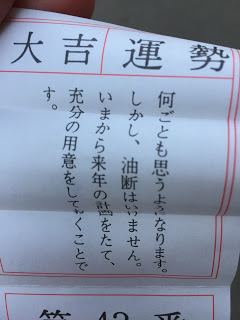 運勢 大吉
何ごとも思うようになります。
しかし、油断はいけません。
いまから来年の計をたて、
充分の用意をしておくことで
す。